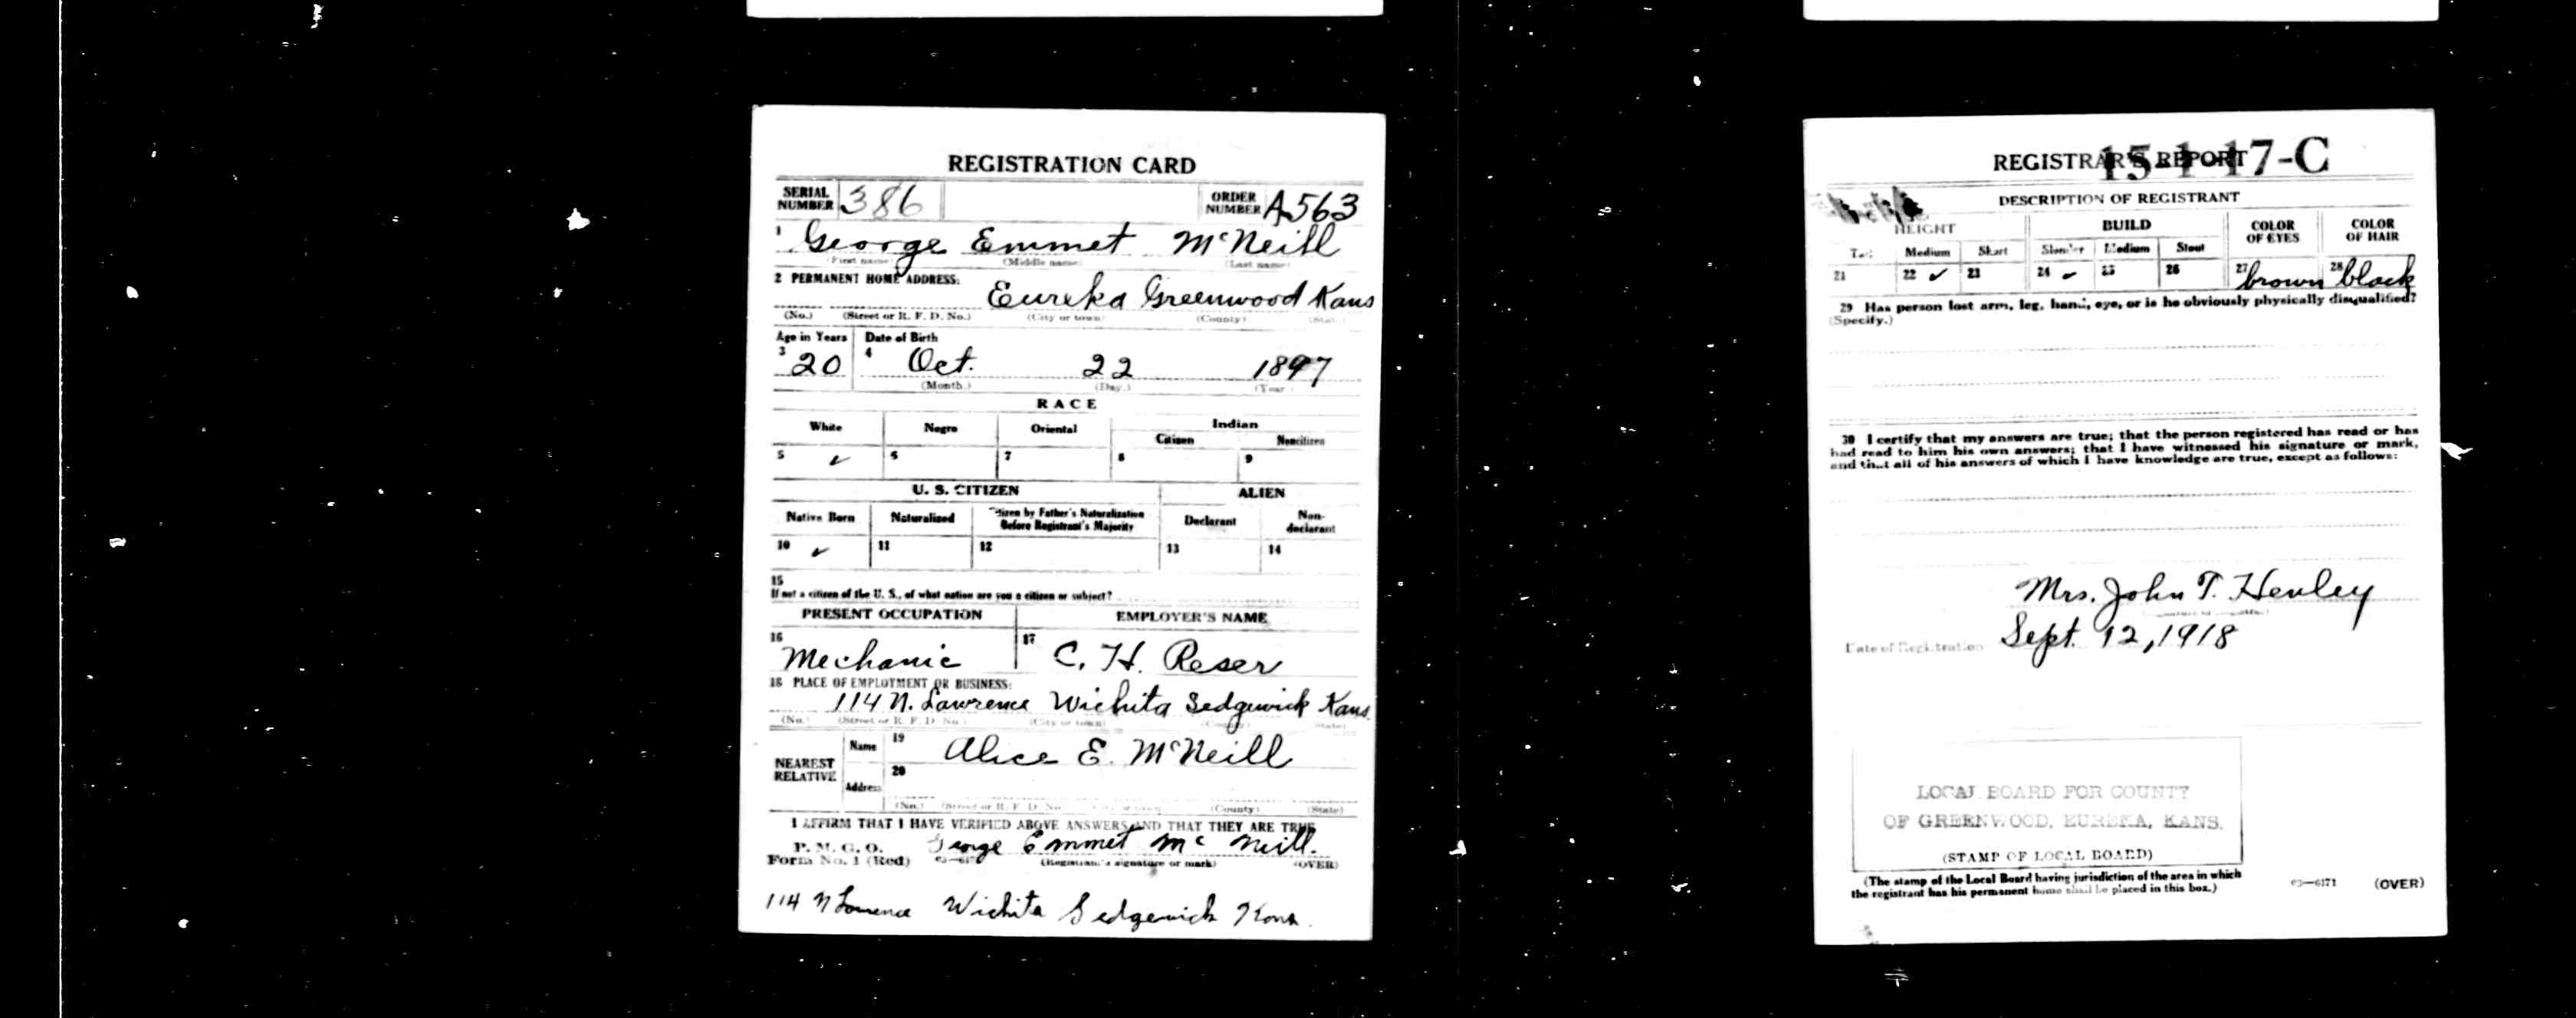 REGISTRATION CARD
SERIAL NUMBER 386 ORDER NUMBER A563
1 George Emmet McNeill
(First name) (Middle name) (Last name)
2 PERMANENT HOME ADDRESS:
Eureka Greenwood Kans
(No.) (Street or R. F. D. No.) (City or town) (County) (State)
Age in Years Date of Birth
3 20 4 Oct. 22 1897
(Month.) (Day.) (Year.)
RACE
White Negro Oriental Indian
Citizen Noncitizen
5 ✓ 6 7 8 9
U. S. CITIZEN ALIEN
Native Born Naturalized Citizen by Father's Naturalization Before Registrant's Majority Declarant Non-declarant
10 ✓ 11 12 13 14
15
If not a citizen of the U. S., of what nation are you a citizen or subject?
PRESENT OCCUPATION EMPLOYER'S NAME
16 Mechanic 17 C. H. Reser
18 PLACE OF EMPLOYMENT OR BUSINESS:
114 N. Lawrence Wichita Sedgwick Kans
(No.) (Street or R. F. D. No.) (City or town) (County) (State)
NEAREST RELATIVE
Name 19 Alice E. McNeill
Address 20
(No.) (Street or R. F. D. No.) (City or town) (County) (State)
I AFFIRM THAT I HAVE VERIFIED ABOVE ANSWERS AND THAT THEY ARE TRUE
P. M. G. O.
Form No. 1 (Red) George Emmet McNeill.
(Registrant's signature or mark) (OVER)
114 N Lawrence Wichita Sedgewick Kans.
REGISTRAR'S REPORT
15-1-17-C
DESCRIPTION OF REGISTRANT
HEIGHT BUILD COLOR OF EYES COLOR OF HAIR
Tall Medium Short Slender Medium Stout
21 22 ✓ 23 24 ✓ 25 26 27 brown 28 black
29 Has person lost arm, leg, hand, eye, or is he obviously physically disqualified?
(Specify.)
30 I certify that my answers are true; that the person registered has read or has
had read to him his own answers; that I have witnessed his signature or mark,
and that all of his answers of which I have knowledge are true, except as follows:
Mrs. John T. Henley
Date of Registration Sept. 12, 1918
LOCAL BOARD FOR COUNTY
OF GREENWOOD, EUREKA, KANS.
(STAMP OF LOCAL BOARD)
(The stamp of the Local Board having jurisdiction of the area in which
the registrant has his permanent home shall be placed in this box.)
03—6171 (OVER)